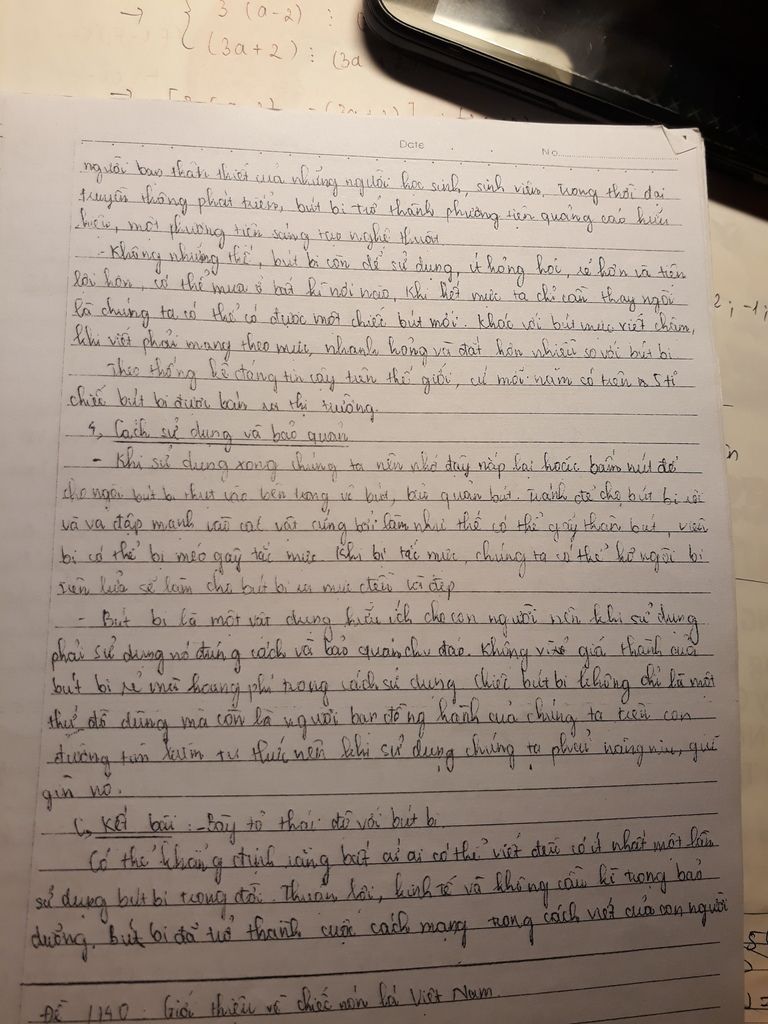 → { 3 (a-2) ⋮
(3a+2) ⋮ (3a
→
Date No.
người bạn thân thiết của những người học sinh, sinh viên. Trong thời đại
truyền thông phát triển, bút bi trở thành phương tiện quảng cáo hữu
hiệu, một phương tiện sáng tạo nghệ thuật
- Không những thế, bút bi còn dễ sử dụng, ít hỏng hóc, rẻ hơn và tiện
lợi hơn, có thể mua ở bất kì nơi nào, khi hết mực ta chỉ cần thay ngòi
là chúng ta có thể có được một chiếc bút mới. Khác với bút mực viết chấm,
khi viết phải mang theo mực, nhanh hỏng và đắt hơn nhiều so với bút bi
Theo thống kê đáng tin cậy trên thế giới, cứ mỗi năm có trên 5 tỉ
chiếc bút bi được bán ra thị trường.
4, Cách sử dụng và bảo quản
- Khi sử dụng xong chúng ta nên nhớ đậy nắp lại hoặc bấm nút để
cho ngòi bút bi thụt vào bên trong vỏ bút, bảo quản bút. Tránh để cho bút bi rơi
và va đập mạnh vào các vật cứng bởi làm như thế có thể gãy thân bút, viên
bi có thể bị méo gây tắc mực. Khi bị tắc mực, chúng ta có thể hơ ngòi bi
trên lửa sẽ làm cho bút bi ra mực đều và đẹp
- Bút bi là một vật dụng hữu ích cho con người nên khi sử dụng
phải sử dụng nó đúng cách và bảo quản chu đáo. Không vì giá thành của
bút bi rẻ mà hoang phí trong cách sử dụng chiếc bút bi không chỉ là một
thứ đồ dùng mà còn là người bạn đồng hành của chúng ta trên con
đường tìm kiếm tri thức nên khi sử dụng chúng ta phải nâng niu, giữ
gìn nó.
C, Kết bài : - Bày tỏ thái độ với bút bi
Có thể khẳng định rằng bất cứ ai có thể viết đều có ít nhất một lần
sử dụng bút bi trong đời. Thuận lợi, kinh tế và không cầu kì trong bảo
dưỡng. Bút bi đã trở thành cuộc cách mạng trong cách viết của con người
Đề 1140 : Giới thiệu về chiếc nón lá Việt Nam.
2 ; -1 ;